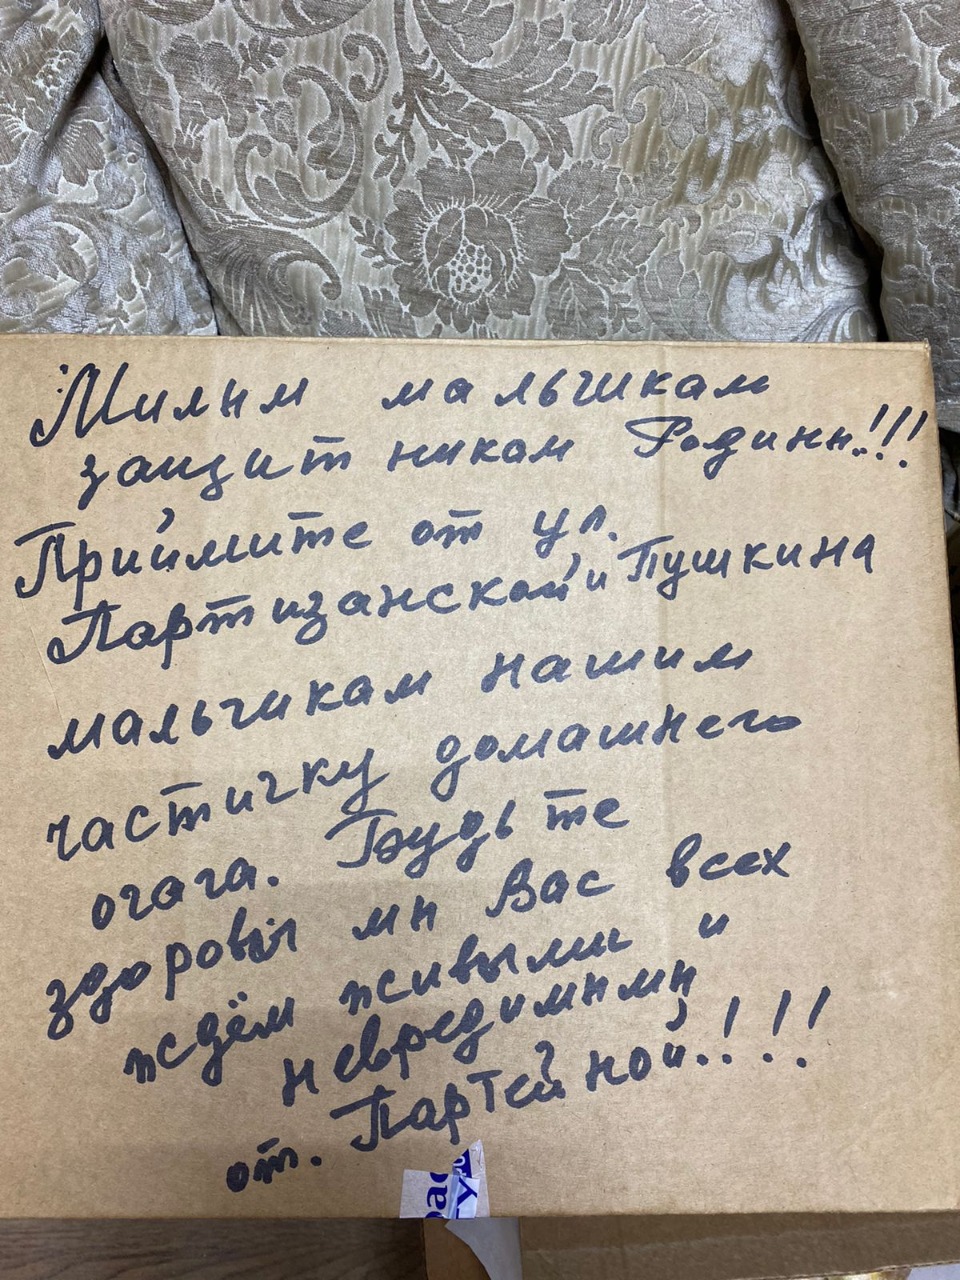 Милым мальчикам
защитникам Родины!!!
Приймите от ул.
Партизанской и Пушкина
мальчикам нашим
частичку домашнего
очага. Будьте
здоровы мы Вас всех
ждём живыми и
невредимыми
от. Партейной!!!!